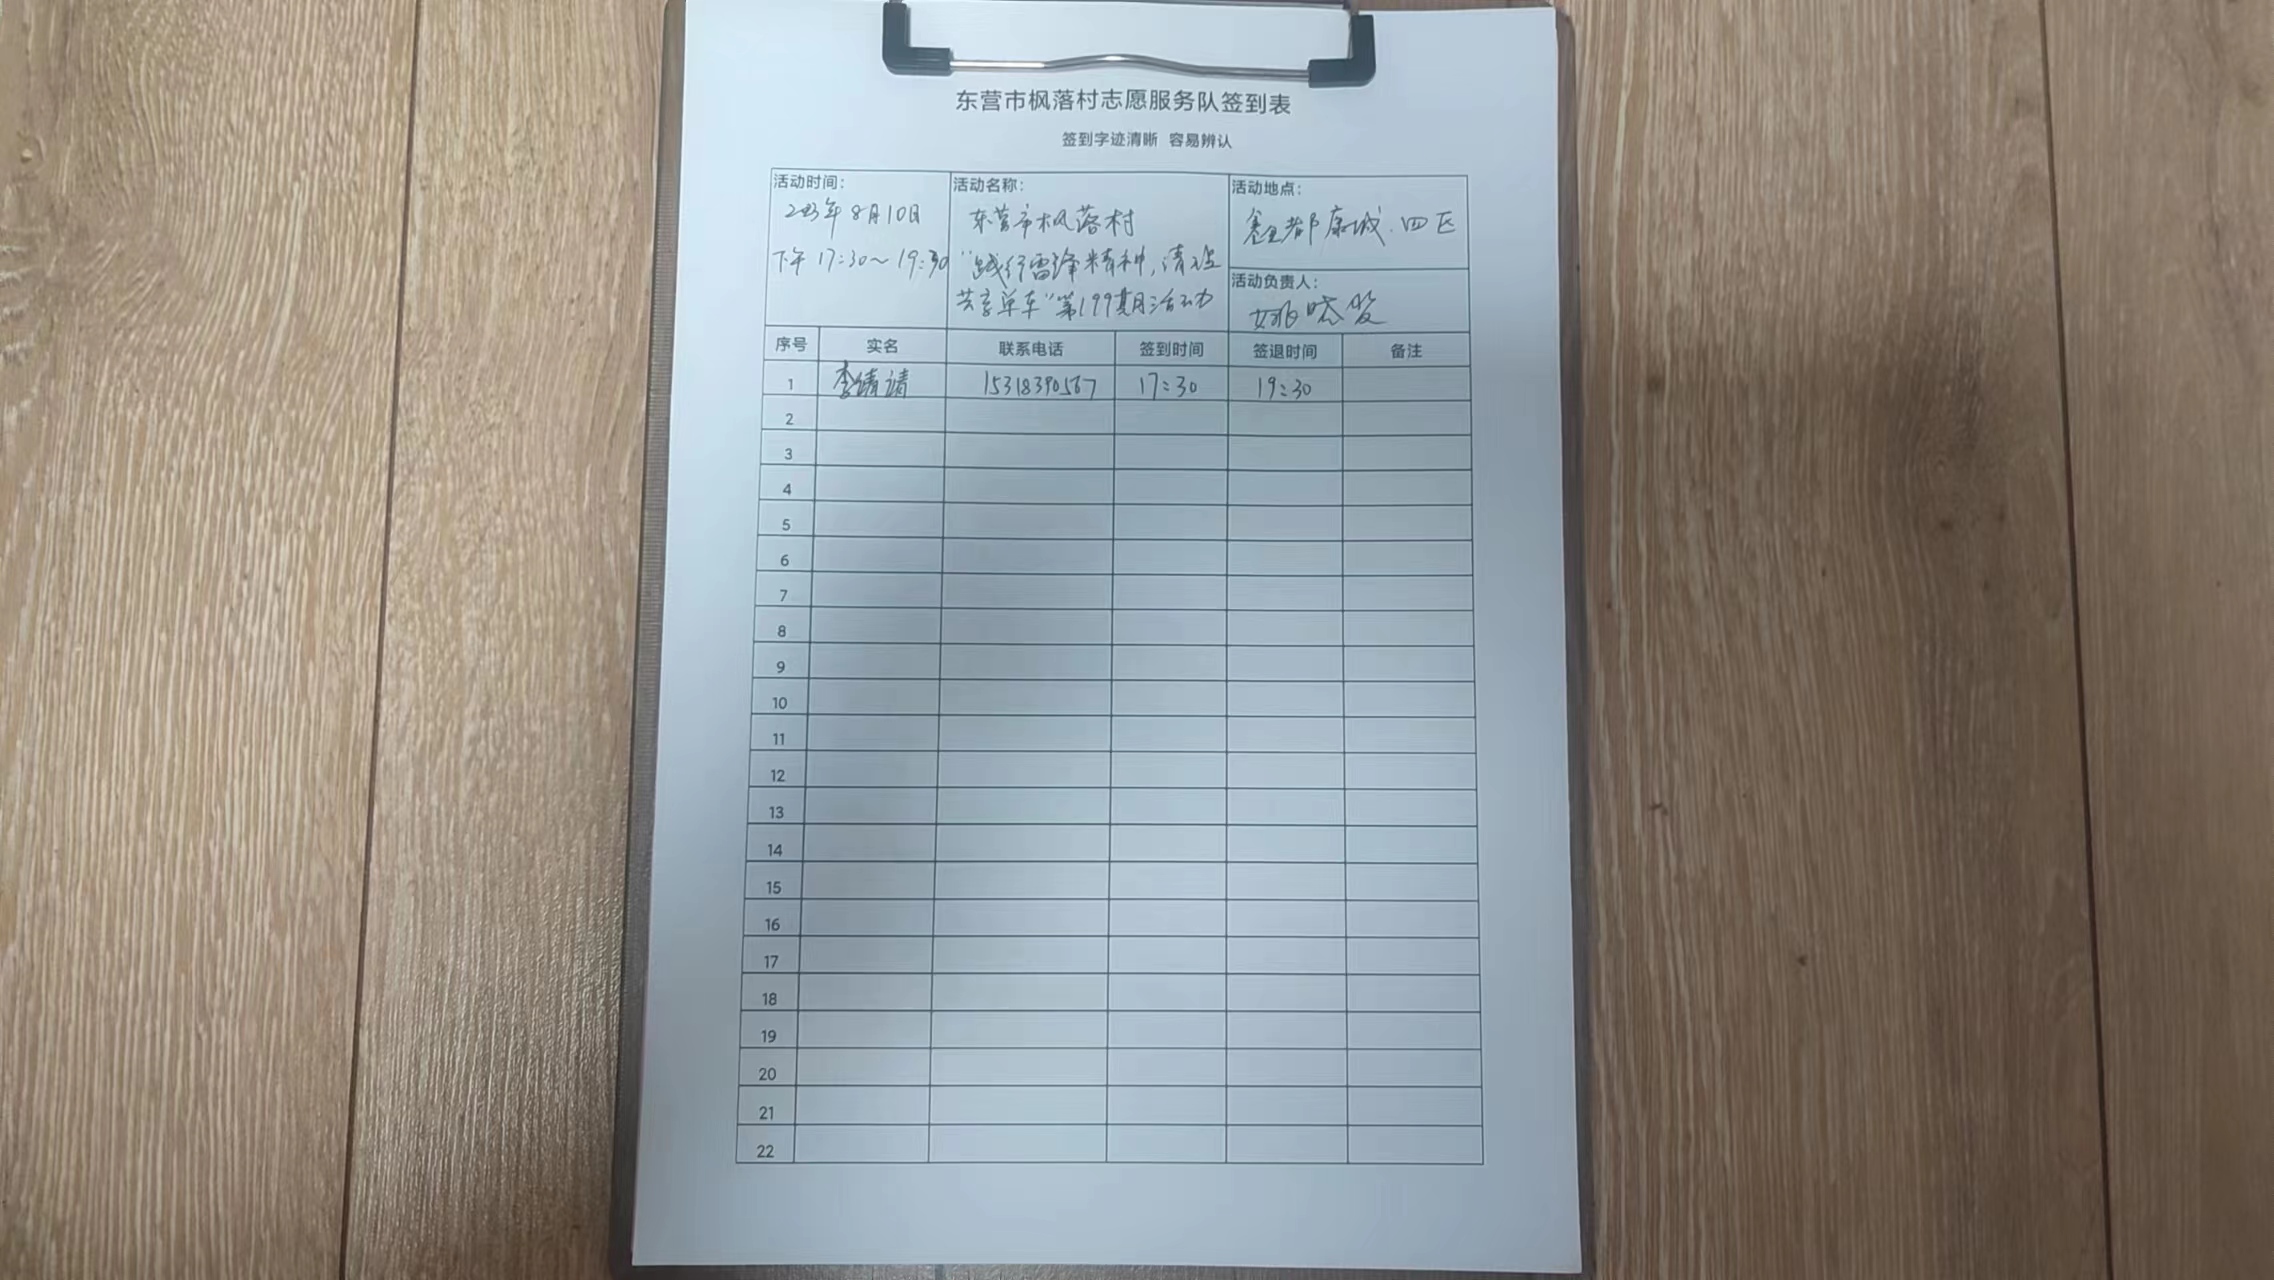 东营市枫落村志愿服务队签到表
签到字迹清晰 容易辨认
活动时间:
2023年8月10日
下午 17:30~19:30
活动名称:
东营市枫落村
"践行雷锋精神,清洁
共享单车"第199期活动
活动地点:
都康城.四区
活动负责人:
姚
序号 实名 联系电话 签到时间 签退时间 备注
1 李 15318390567 17:30 19:30
2
3
4
5
6
7
8
9
10
11
12
13
14
15
16
17
18
19
20
21
22